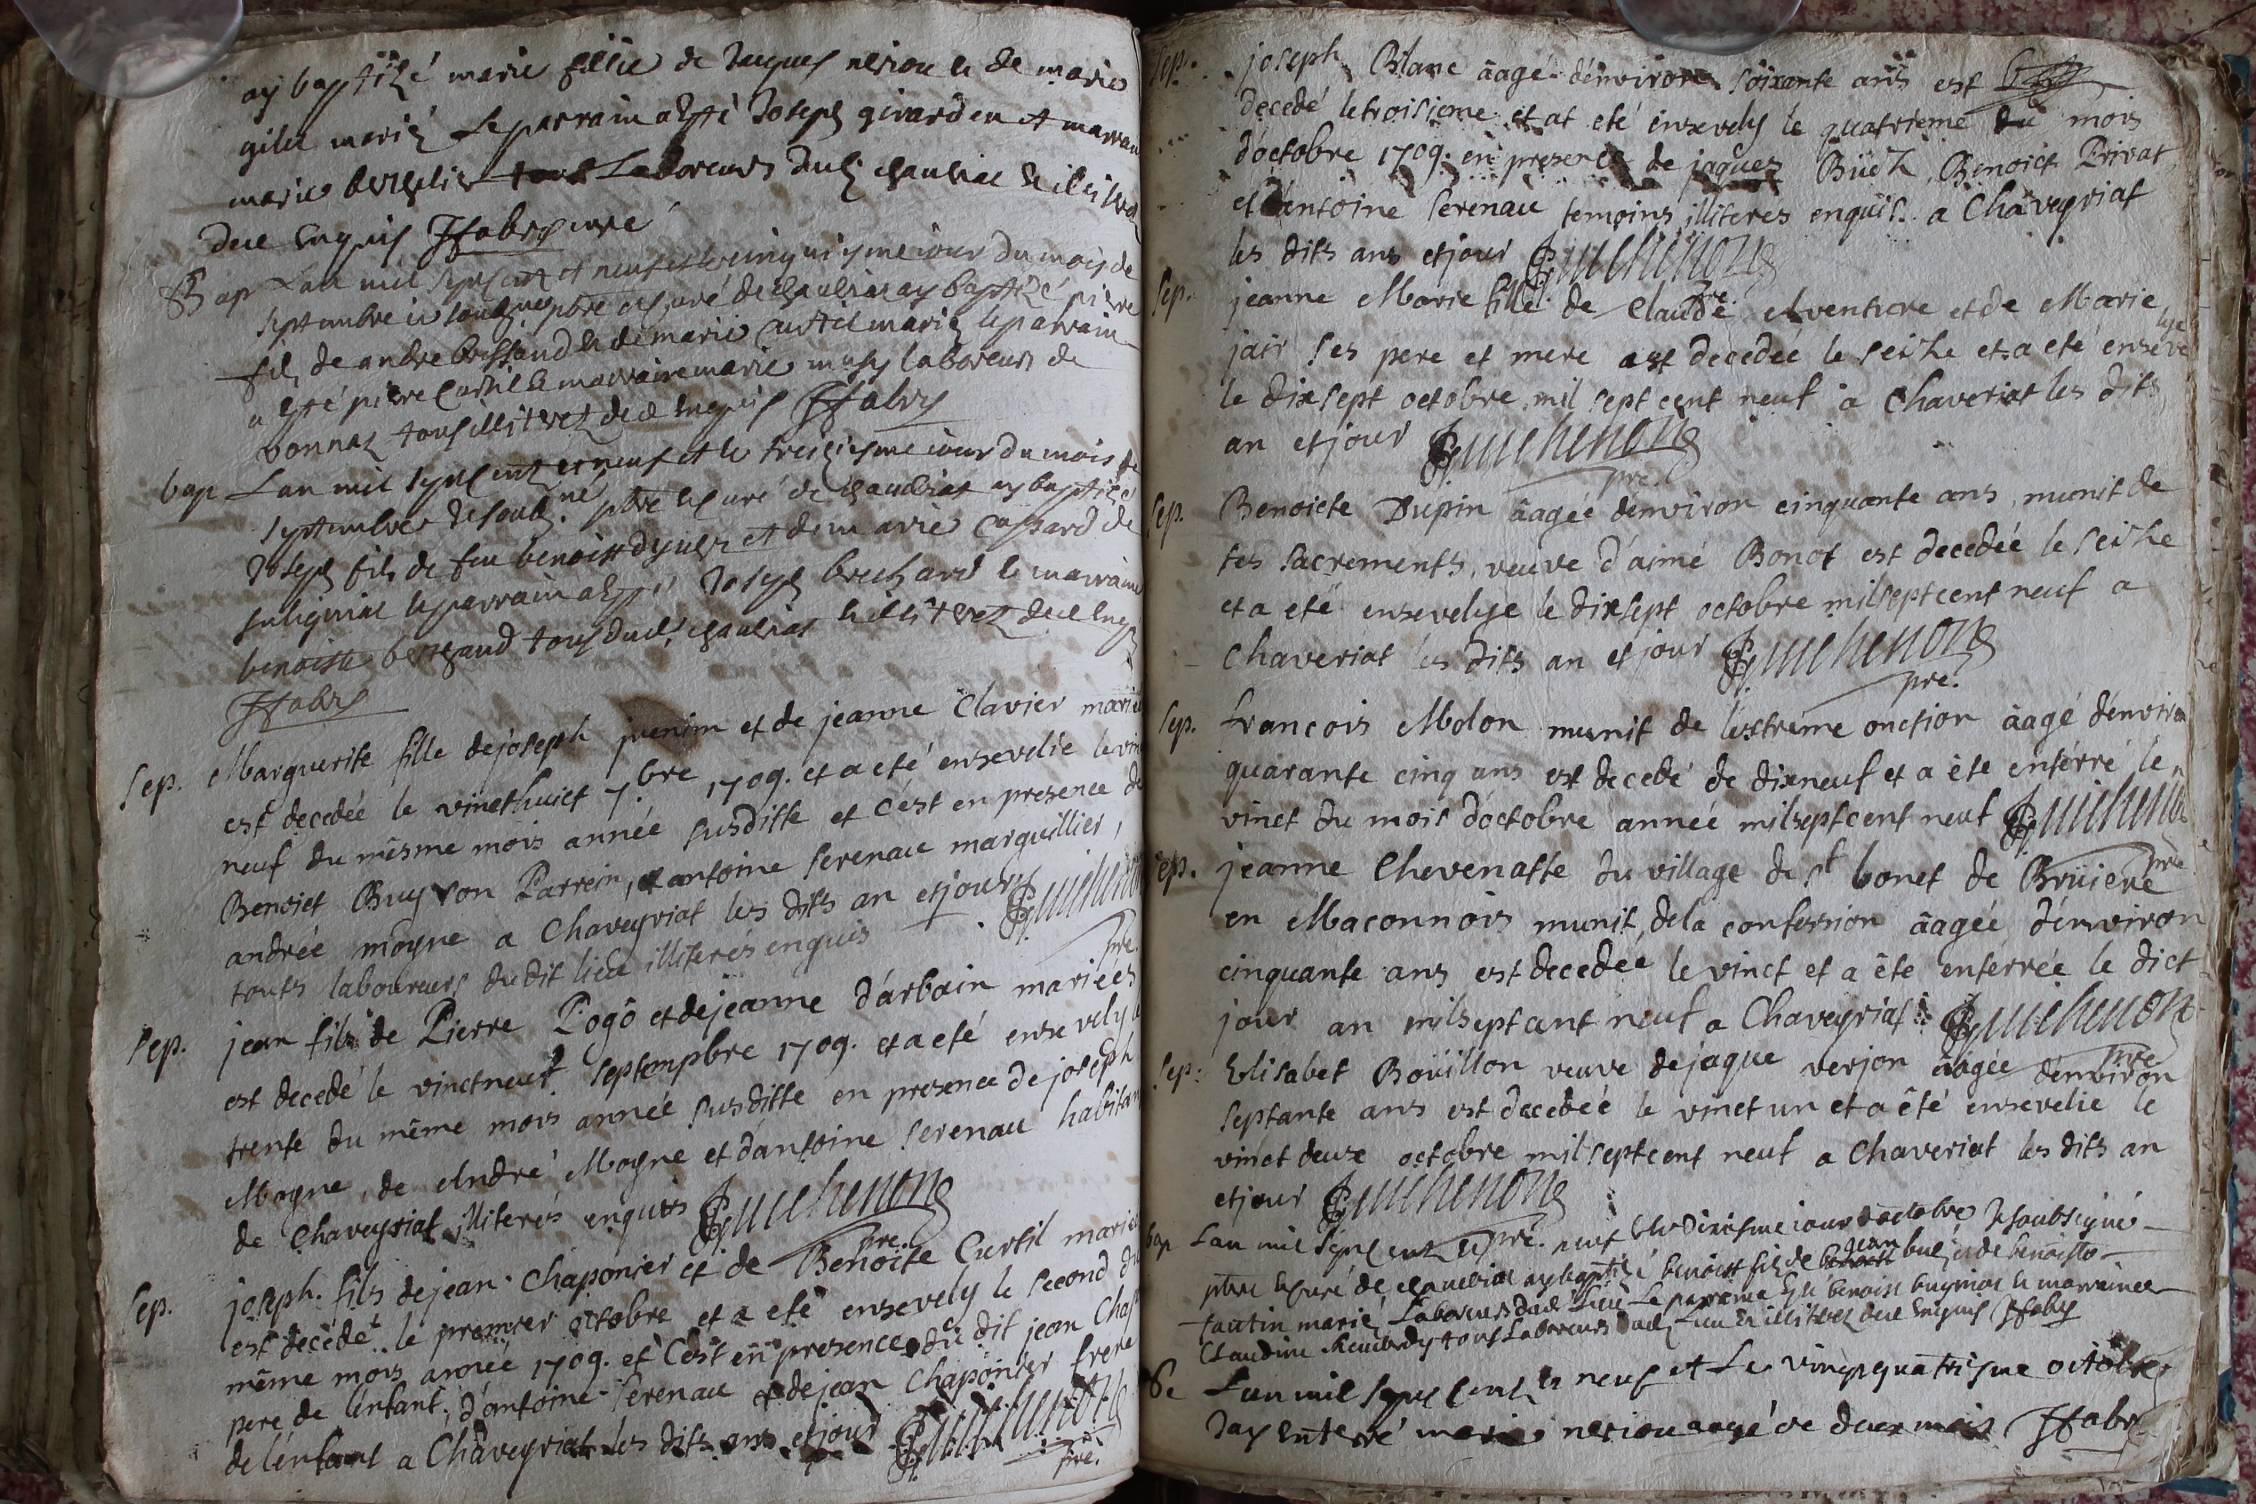 ay baptizé marie fille de Jaques nesiou & de marie
gilet mariés Le parrain a esté Joseph girardeu et marrain
marie bercelie Laboreurs dud chauriat
due Enquis JFabry curé
Bap Lan mil sept cent et neuf et le cinquisme jour du mois de
septembre je soubsigné pbre et curé de chauriat ay baptizé pierre
fils de andre brossaud & de marie curtil mariés le parrain
a esté pierre curtil & marraine marie musy laboreurs de
vonnaz tous illitrez de ce Enquis JFabry
bap Lan mil sept cent et neuf et le treizisme jour du mois de
septembre Je soubs.ne pbre et curé de chauriat ay baptizé
Joseph fils de feu benoist et de marie de
suligniat le parrain a esté Joseph brechard & marraine
benoiste tous dud. chauriat & illitrez de ce Enquis
JFabry
Sep. Marguerite fille de joseph juenin et de jeanne Clavier mariés
est decedée le vincthuict 7.bre 1709. et a eté ensevelie le vin
neuf du mesme mois année susditte et c'est en presence de
Benoict Buy son Parrein, et antoine Serenau marguillier,
andrée moyne a Chaveyriat les dits an et jours Guichenon
touts laboureurs du dit lieu illiterés enquis pre.
Sep. jean fils de Pierre Pogô et de jeanne d'arbain mariées
est decedé le vinctneuf septempbre 1709. et a eté ensevely le
trente du même mois année susditte en presence de joseph
Moyne, de André Moyne et d'antoine Serenau habitan
de Chaveyriat illiterés enquis Guichenon
pre.
Sep. joseph. fils de jean Chaponier et de Benoite Curtil mariés
est decédé le premier octobre et a eté ensevely le second du
même mois année 1709. et c'est en presence du dit jean Chap
pere de l'enfant, d'antoine Serenau et de jean Chaponier frere
de l'enfant a Chaveyriat les dits ans et jour Guichenon
pre.
Sep. joseph Blanc âagé d'environ soixante ans est
decedé le troisieme et at eté ensevely le quatrieme du mois
d'octobre 1709. en presence de jaques Büet, Benoict Privat
et d'antoine Serenau temoins illiteres enquis. a Chaveyriat
les dits ans et jour Guichenon
pre.
Sep. jeanne Marie fille de Claude Aventure et de Marie
jair ses pere et mere est decedeé le seize et a eté ensevelye
le dixsept octobre mil sept cent neuf a Chaveriat les dits
an et jour Guichenon
pre.
Sep. Benoicte Dupin âagéé d'environ cinquante ans, munit de
tes sacrements, veuve d'aimé Bonot est decedéé le seize
et a eté ensevelye le dixsept octobre milseptcent neuf a
Chaveriat les dits an et jour Guichenon
pre.
Sep. francois Molon munit de l'extrême onction âagé d'environ
quarante cinq ans est decedé de dixneuf et a ête enterré le
vinct du mois d'octobre année milseptcent neuf Guichenon
pre
Sep. jeanne Chevenatte du village de St bonet de Brüiere
en Maconnois munit de la confession âagéé d'environ
cinquante ans est decedéé le vinct et a ête enterréé le dict
jour an milseptcent neuf a Chaveyriat Guichenon
pre
Sep: Elisabet Boüillon veuve de jaque verjon âagée d'environ
septante ans est decedéé le vinct un et a êté ensevelie le
vinct deux octobre milseptcent neuf a Chaveriat les dits an
et jour Guichenon
pre.
bap Lan mil sept cent et neuf & le dixisme jour d'octobre Je soubsigné
pbre & curé de chauriat ay baptizé benoist fils de jean buy et de benoiste
tautin mariés Laboreurs dud Lieu Le parrain a Esté benoist buyriat & marraine
Claudine tous Laboreurs dud Lieu & illitrez de ce Enquis JFabry
Se Lan mil sept cent & neuf et Le vingt quatrisme octobre
Jay Enterré marie nesiou aagé de deux mois JFabry